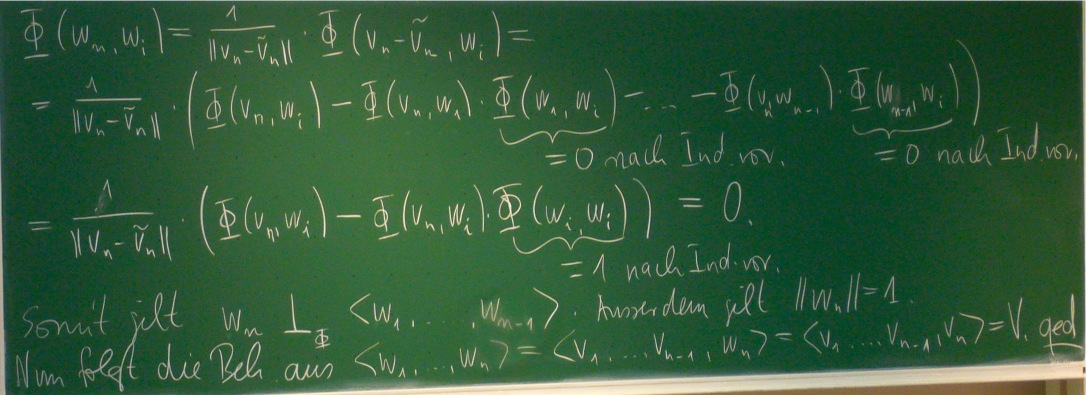 Φ(w_n, w_i) = 1/‖v_n - ṽ_n‖ · Φ(v_n - ṽ_n, w_i) =
= 1/‖v_n - ṽ_n‖ · (Φ(v_n, w_i) - Φ(v_n, w_1) · Φ(w_1, w_i) - ... - Φ(v_n, w_{n-1}) · Φ(w_{n-1}, w_i))
= 0 nach Ind.vor. = 0 nach Ind.vor.
= 1/‖v_n - ṽ_n‖ · (Φ(v_n, w_i) - Φ(v_n, w_i) · Φ(w_i, w_i)) = 0.
= 1 nach Ind.vor.
Somit gilt w_n ⊥_Φ <w_1, ..., w_{n-1}>. Ausserdem gilt ‖w_n‖ = 1.
Nun folgt die Beh. aus <w_1, ..., w_n> = <v_1, ..., v_{n-1}, w_n> = <v_1, ..., v_{n-1}, v_n> = V. qed